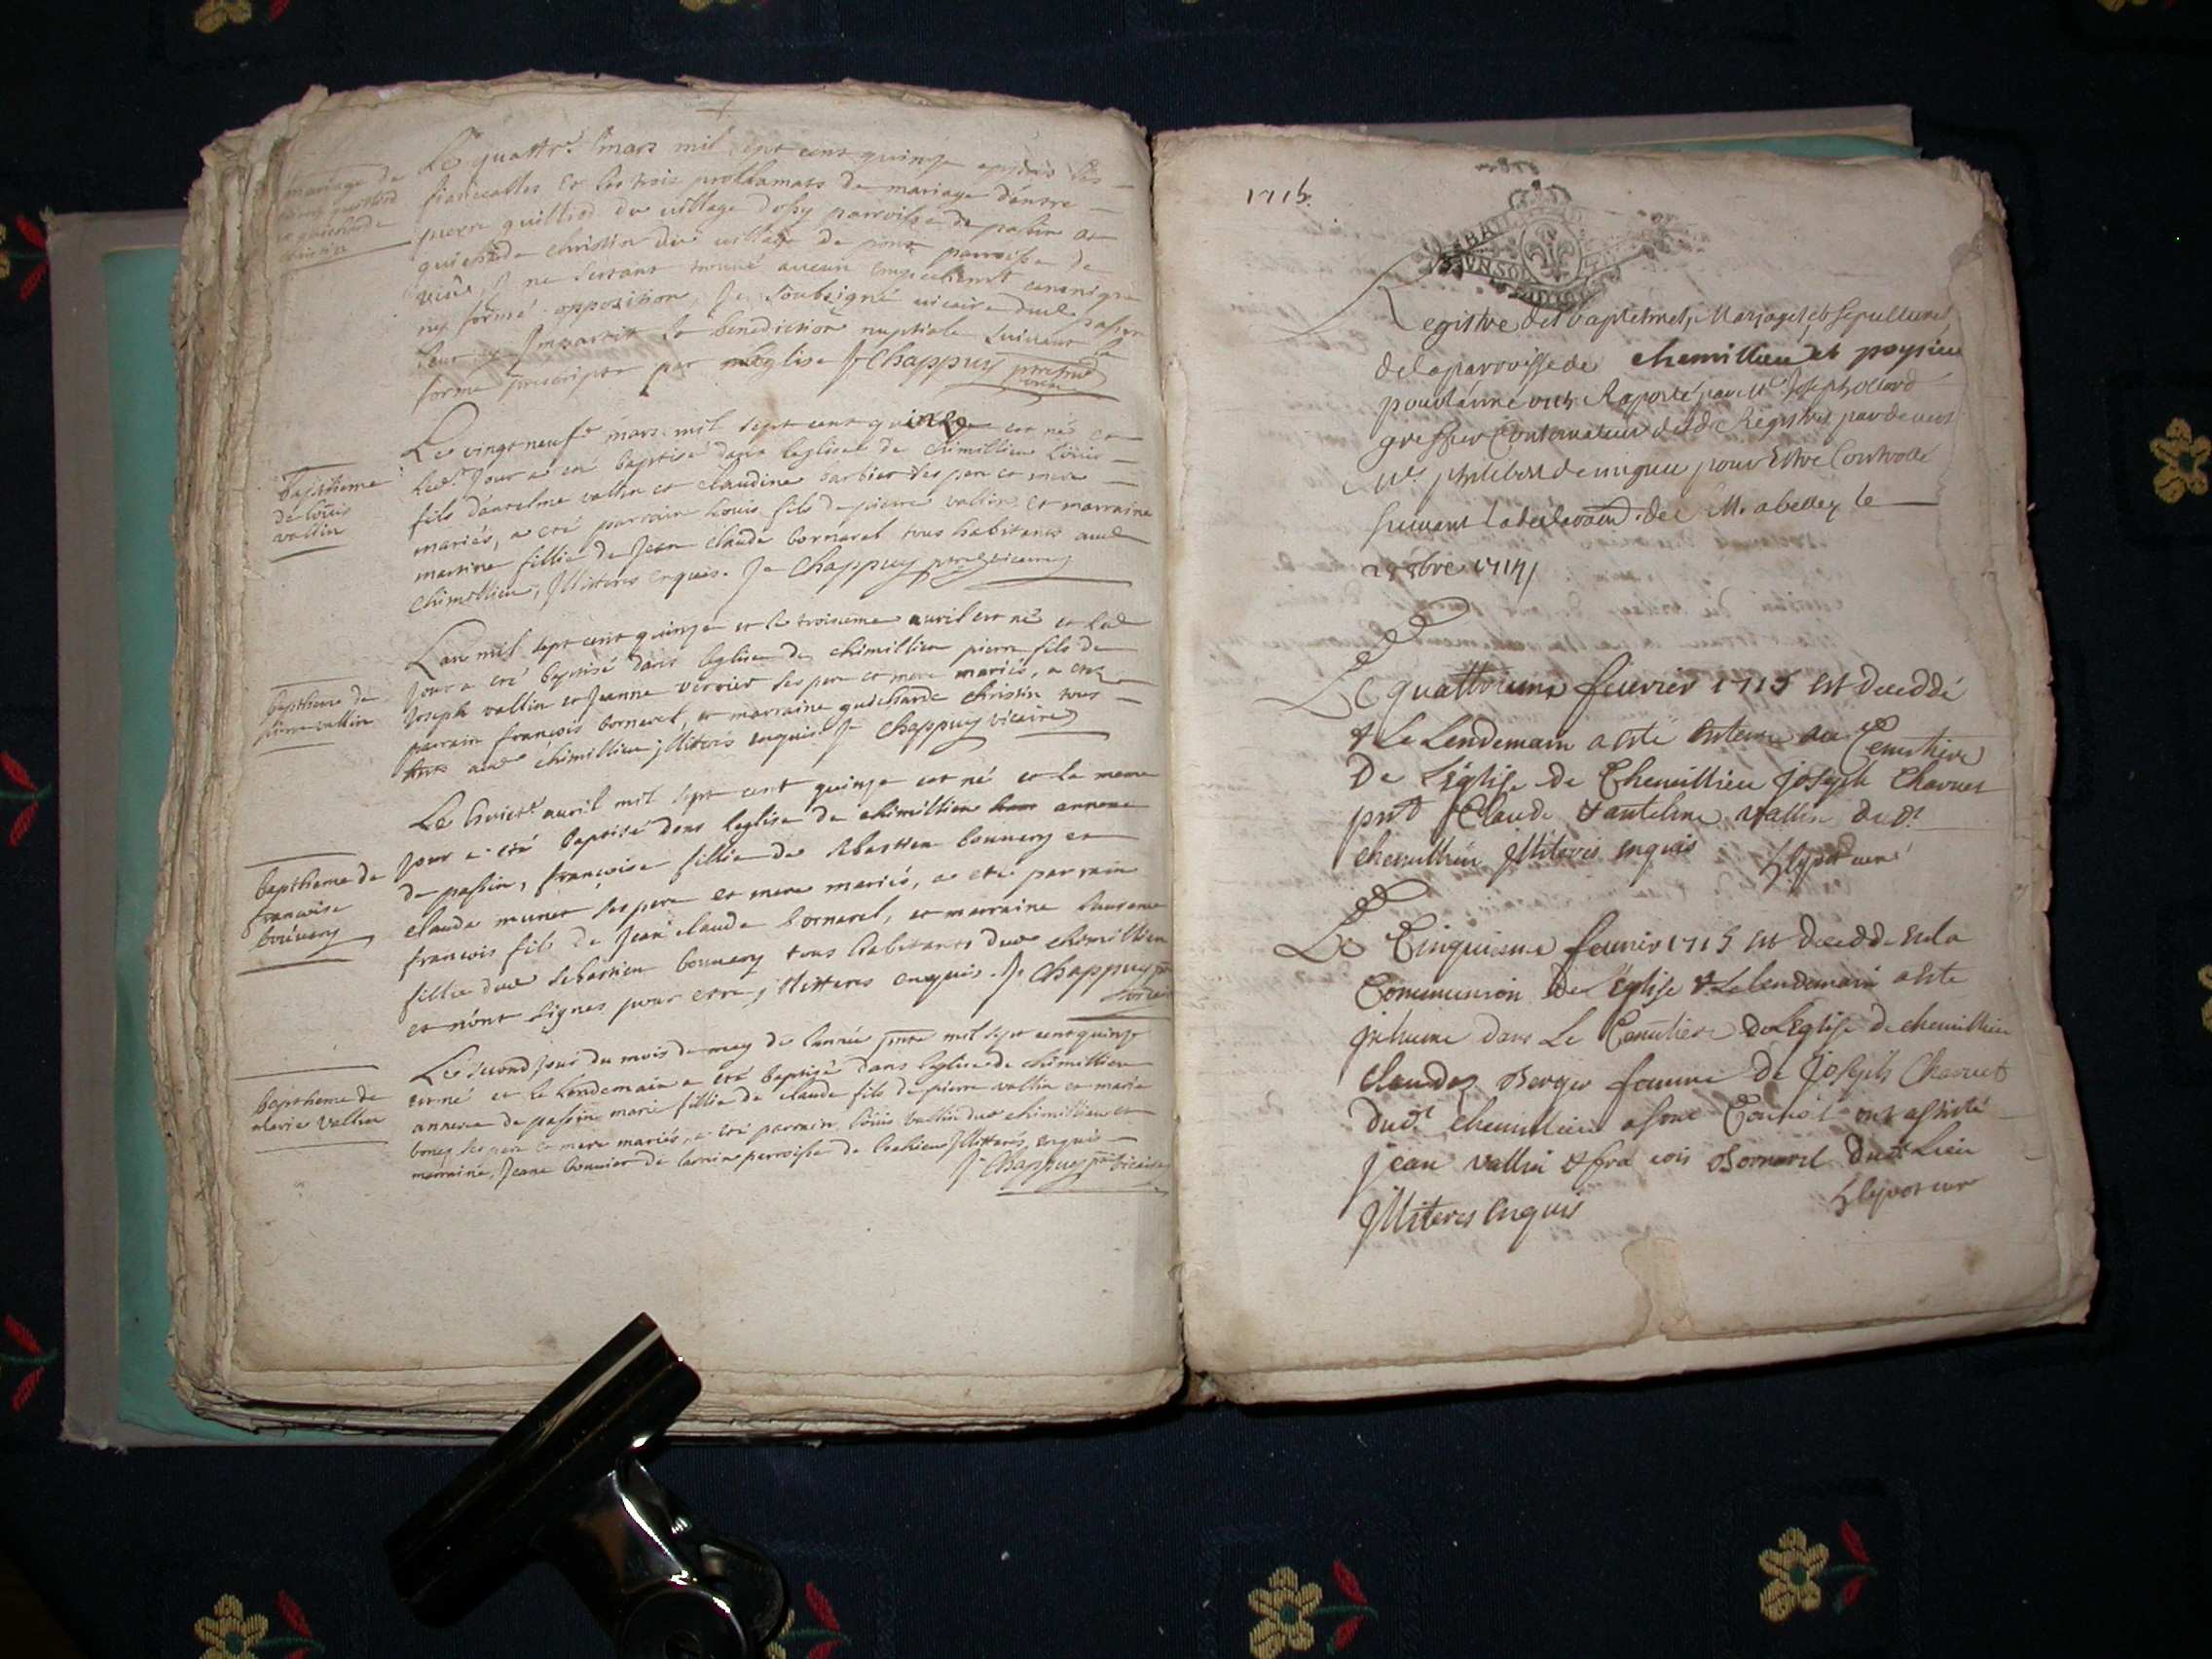 mariage de
pierre guilliod
et guicharde
christin
Le quattre mars mil sept cent quinze apres les
fiancailles et les trois proclamats de mariage d'entre
pierre guilliod du village d'ossy parroisse de passin et
guicharde christin du village de pont parroisse de
ne s'estant trouvé aucun empechement canonique
ny formé opposition, Je soubsigné vicaire dud passin
leur ay Imparti la benediction nuptiale suivant la
forme prescripte par l'eglise J Chappuy
baptheme
de louis
vallin
Le vingt neufe mars mil sept cent quinze est né et
led. Jour a eté baptisé dans l'eglise de chimillieu louis
fils d'antelme vallin et claudine barbier ses pere et mere
mariés, a eté parrain louis fils de pierre vallin et marraine
martine fillie de Jean claude bornarel tous habitants aud
chimillieu, Illitteres enquis. J Chappuy vicaire
baptheme de
pierre vallin
L'an mil sept cent quinze et le troisieme avril est né et led
Jour a eté baptisé dans l'eglise de chimillieu pierre fils de
Joseph vallin et Jeanne verrier ses pere et mere mariés, a eté
parrain françois bornarel, et marraine guicharde christin tous
aud chimillieu Illiterés enquis. J Chappuy vicaire
baptheme de
francoise
bouvery
Le huict avril mil sept cent quinze est né et le meme
Jour a eté baptisé dans l'eglise de chimillieu annexe
de passin, françoise fillie de sebastien bouvery et
claude munet ses pere et mere mariés, a eté parrain
francois fils de Jean claude bornarel, et marraine
fillie dud sebastien bouvery tous habitants dud chimillieu
et n'ont signés pour etre Illitteres enquis. J Chappuy
baptheme de
marie vallin
Le second Jour du mois de may de l'année mil sept cent quinze
est né et le lendemain a eté baptisé dans l'eglise de chimillieu
annexe de passin marie fillie de claude fils de pierre vallin et marie
ses pere et mere mariés, a eté parrain louis vallin dud chimillieu et
marraine, Jeane bouvier de parroisse de lochieu Illitterés enquis
J Chappuy vicaire
1715.
BAT
UN SOL
Registre des baptesmes, Mariages, et sepultures
de la parroisse de chemillieu et poysieu
pour l'année 1715 Raporté par Mr Joseph
greffier Conservateur desd Registres pardevers
Mr philibert demigieu pour Estre Controllé
suivant la declaraon. de M. abellex le
8bre 1714
Le quattorieme feuvrier 1715 est decedé
& Le Lendemain a esté enterre au Cemetiere
De L'eglise de Chemillieu Joseph Charvet
pnt Claude & anteline vallin dud
chemillieu Illiteres enquis
Le Cinquieme feuvrier 1715 est decedde en la
Communion de l'Eglise & Le lendemain a este
inhume dans Le Cemetiere de L'Eglise de chemillieu
claudaz Berger femme De Joseph Charvet
dud chemillieu a son Convoi ont assisté
jean vallin & francois Bornarel Dud Lieu
Illiteres enquis